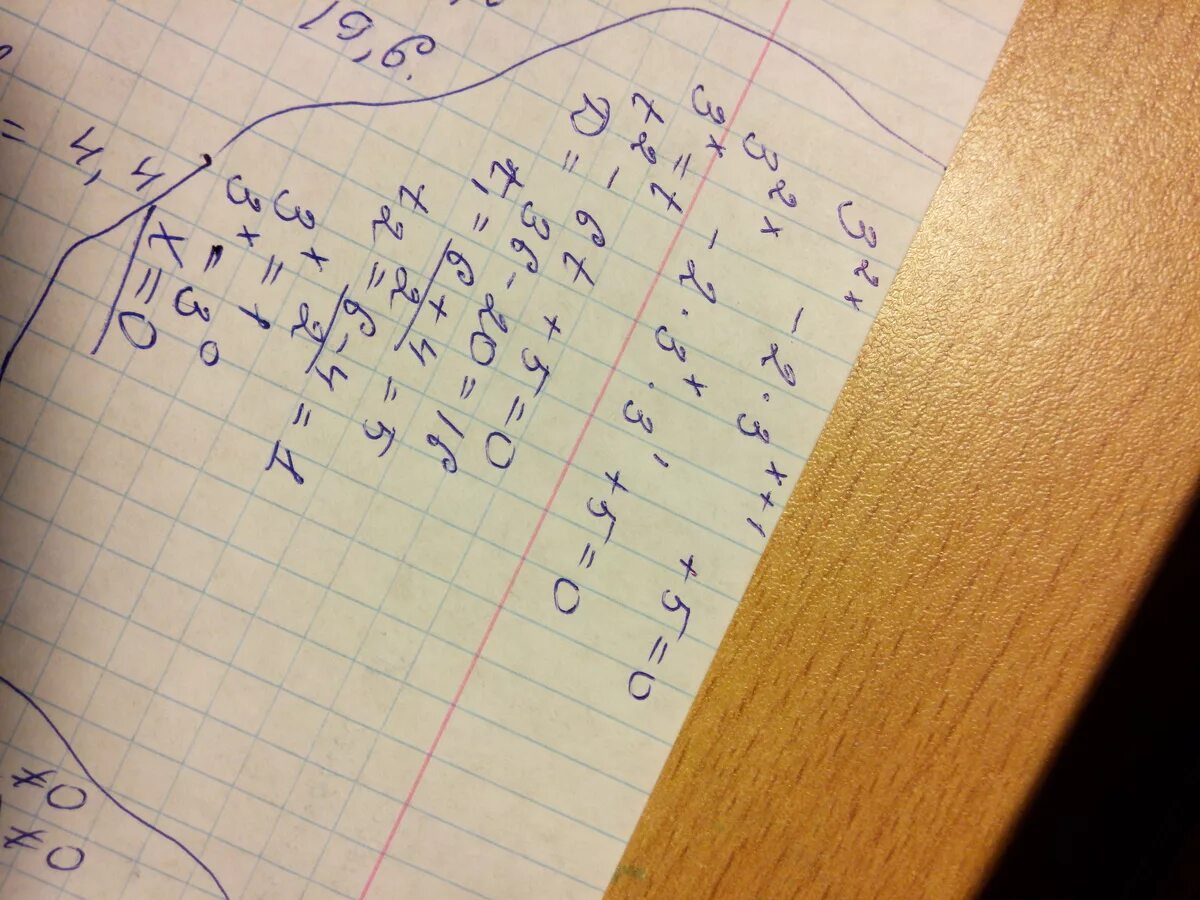 3²ˣ - 2·3ˣ⁺¹ + 5 = 0
3²ˣ - 2·3ˣ·3¹ + 5 = 0
3ˣ = t
t² - 6t + 5 = 0
D = 36 - 20 = 16
t₁ = (6+4)/2 = 5
t₂ = (6-4)/2 = 1
3ˣ = 1
3ˣ = 3⁰
x = 0